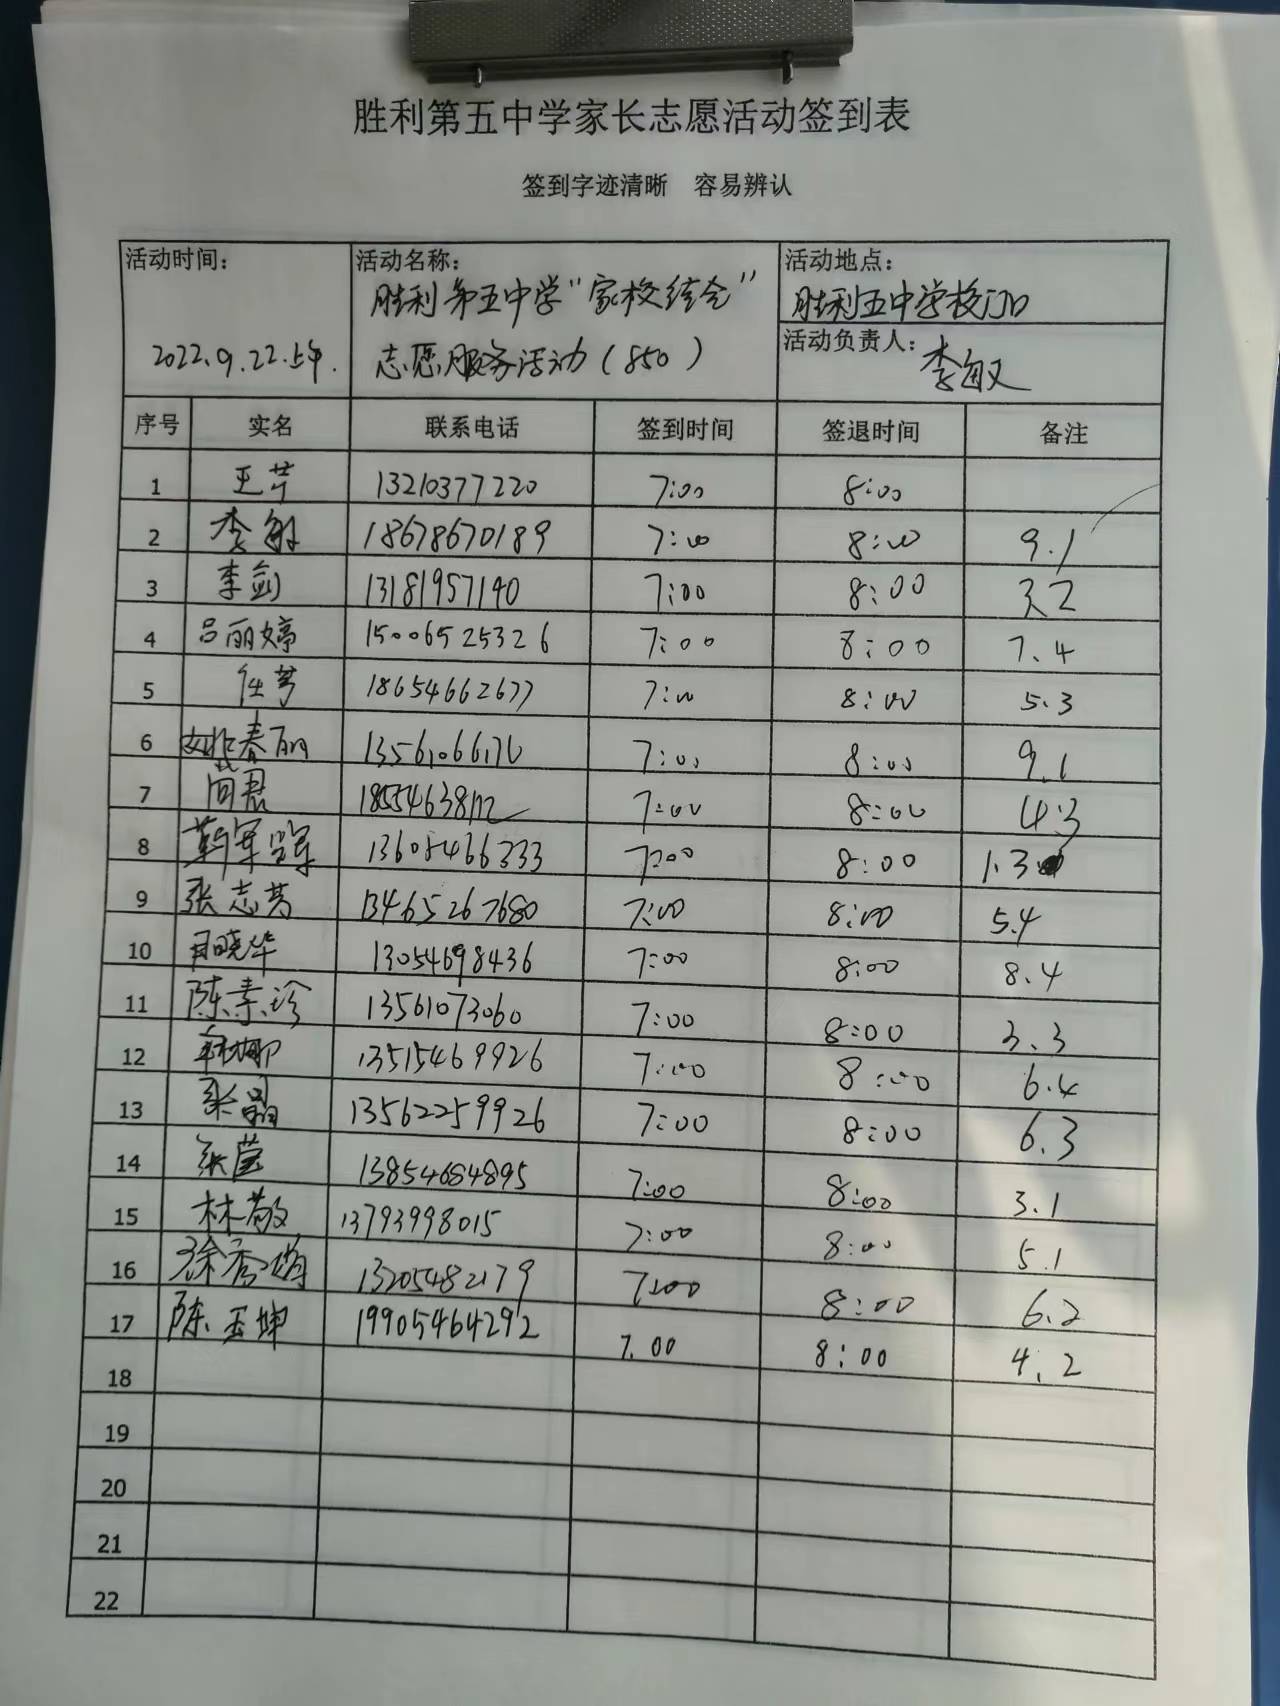 胜利第五中学家长志愿活动签到表
签到字迹清晰 容易辨认
活动时间： 活动名称： 活动地点：
胜利第五中学“家校结合” 胜利五中学校门口
2022.9.22.上午. 志愿服务活动（850） 活动负责人： 李敏
序号 实名 联系电话 签到时间 签退时间 备注
1 王芹 13210377220 7:00 8:00
2 李敏 18678670189 7:00 8:00 9.1
3 李剑 13181957190 7:00 8:00 3.2
4 吕丽婷 15006525326 7:00 8:00 7.4
5 任芳 18654662677 7:00 8:00 5.3
6 姚春丽 13561066176 7:00 8:00 9.1
7 7:00 8:00 4.3
8 13608466333 7:00 8:00 1.3
9 张志芳 13465267680 7:00 8:00 5.4
10 晓华 13054698436 7:00 8:00 8.4
11 陈素珍 13561073060 7:00 8:00 3.3
12 13515469926 7:00 8:00 6.4
13 张晶 13562259926 7:00 8:00 6.3
14 张莹 13854684895 7:00 8:00 3.1
15 林敬 13793998015 7:00 8:00 5.1
16 徐秀娟 13205482179 7:00 8:00 6.2
17 陈玉坤 19905464292 7.00 8:00 4.2
18
19
20
21
22